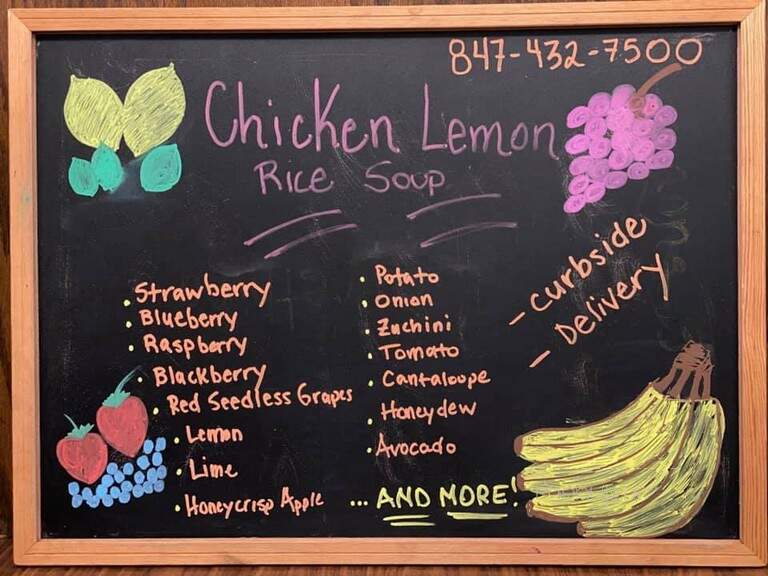 847-432-7500
Chicken Lemon
Rice Soup
• Strawberry
• Blueberry
• Raspberry
• Blackberry
• Red Seedless Grapes
• Lemon
• Lime
• Honeycrisp Apple
• Potato
• Onion
• Zuchini
• Tomato
• Cantaloupe
• Honeydew
• Avocado
... AND MORE!
- Curbside
- Delivery